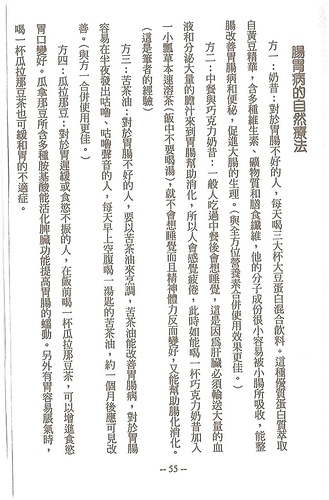 腸胃病的自然療法
方一:奶昔:對於胃腸不好的人，每天喝三大杯大豆蛋白混合飲料。這種優質蛋白質萃取
自黃豆精華，含多種維生素、礦物質和膳食纖維，他的分子成份很小容易被小腸所吸收，能整
腸改善胃腸病和便秘，促進大腸的生理。(與全方位營養素合併使用效果更佳。)
方二:中餐與巧克力奶昔:一般人吃過中餐後會想睡覺，這是因為肝臟必須輸送大量的血
液和分泌大量的膽汁來到胃腸幫助消化，所以人會感覺疲倦，此時如能喝一杯巧克力奶昔加入
一小瓢草本速溶茶(飯中不要喝湯)，就不會想睡覺而且精神體力反而變好，又能幫助腸化消化。
(這是筆者的經驗)
方三:苦茶油:對於胃腸不好的人，要以苦茶油來烹調，苦茶油能改善胃腸病，對於胃腸
容易在半夜發出咕嚕、咕嚕聲音的人，每天早上空腹喝一湯匙的苦茶油，約一個月後應可見改
善。(與方一合併使用更佳。)
方四:瓜拉那豆:對於胃遲緩或食慾不振的人，在飯前喝一杯瓜拉那豆茶，可以增進食慾
胃口變好。瓜拿那豆所含多種胺基酸能活化脾臟功能提高胃腸的蠕動。另外有胃容易脹氣時，
喝一杯瓜拉那豆茶也可緩和胃的不適症。
-- 55 --